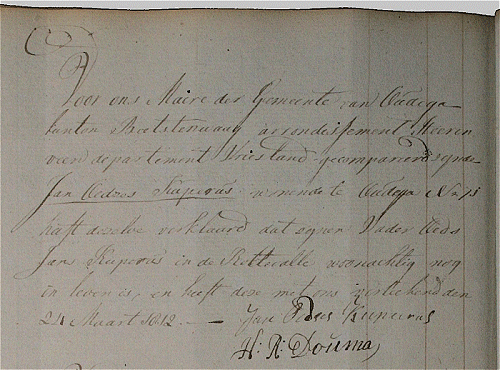 Voor ons Maire der Gemeente van Oudega
kanton Beetsterzwaag arrondissement Heeren
veen departement Vriesland gecompareerd zijnde
Jan Oedses Kuperus wonende te Oudega No 13
heeft dezelve verklaard dat zijnen Vader Oeds
Jans Kuperus in de woonachtig nog
in leven is, en heeft deze met ons den
24 Maart 1812 — Jan Kuperus
H: R: Douma